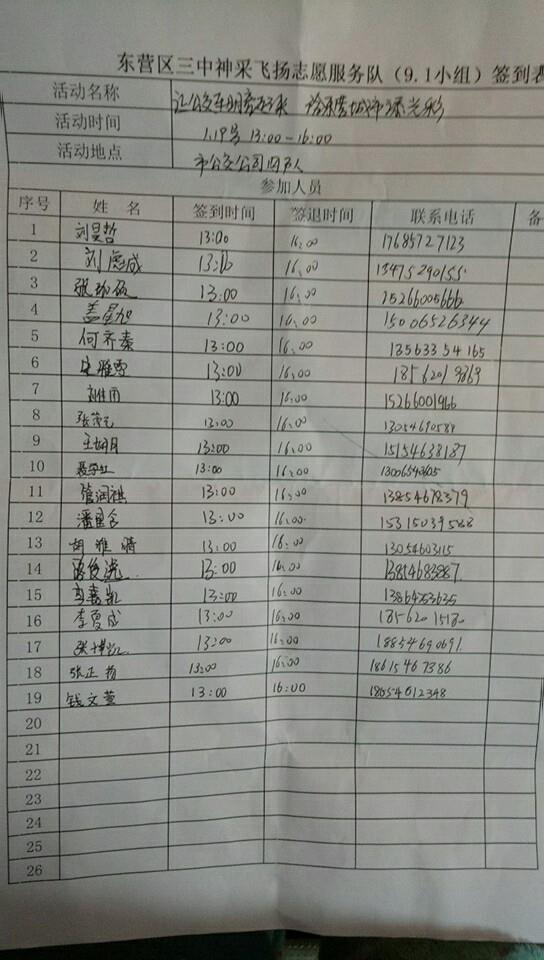 东营区三中神采飞扬志愿服务队（9.1小组）签到表
活动名称 让公交车明亮起来 给東营城市添光彩
活动时间 1.19号 13:00-16:00
活动地点 市公交公司四队
参加人员
序号 姓 名 签到时间 签退时间 联系电话 备
1 刘昊哲 13:00 16:00 17685727123
2 刘彦成 13:00 16:00 13475290155
3 13:00 16:00 15266005666
4 盖星如 13:00 16:00 15006526344
5 何齐秦 13:00 16:00 13563354165
6 13:00 16:00 18562019869
7 刘佳雨 13:00 16:00 15266001966
8 13:00 16:00 13054690589
9 王胡月 13:00 16:00 15154638187
10 13:00 16:00
11 管润淇 13:00 16:00 13854678379
12 13:00 16:00 15315039588
13 胡雅晴 13:00 16:00 13054603115
14 13:00 16:00 13854683887
15 13:00 16:00
16 李夏成 13:00 16:00 18562015180
17 张博凯 13:00 16:00 18854690691
18 张正 13:00 16:00 18615467386
19 钱文萱 13:00 16:00 18654612348
20
21
22
23
24
25
26